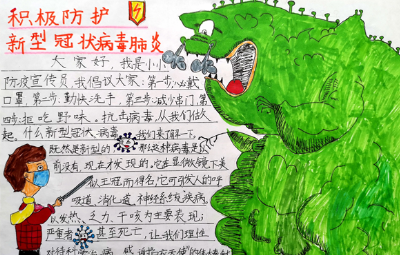 积极防护
新型冠状病毒肺炎
大家好,我是小小
防疫宣传员,我倡议大家:第一步,必戴
口罩,第二步,勤快洗手,第三步,减少串门,第
四步,拒吃野味。抗击病毒,从我们做
起。什么新型冠状病毒 我们来了解一下,
既然是新型的 那这种病毒是以
前没有,现在才发现的,它在显微镜下类
似王冠而得名,它可引人的呼
吸道、消化道、神经系统疾病,
以发热、乏力、干咳为主要表现;
严重者 甚至死亡,让我们理性